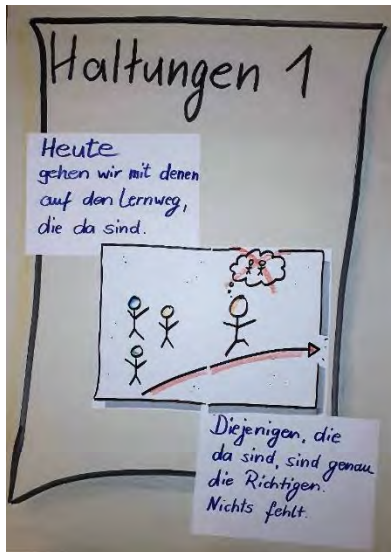 Haltungen 1
Heute
gehen wir mit denen
auf den Lernweg,
die da sind.
Diejenigen, die
da sind, sind genau
die Richtigen.
Nichts fehlt.